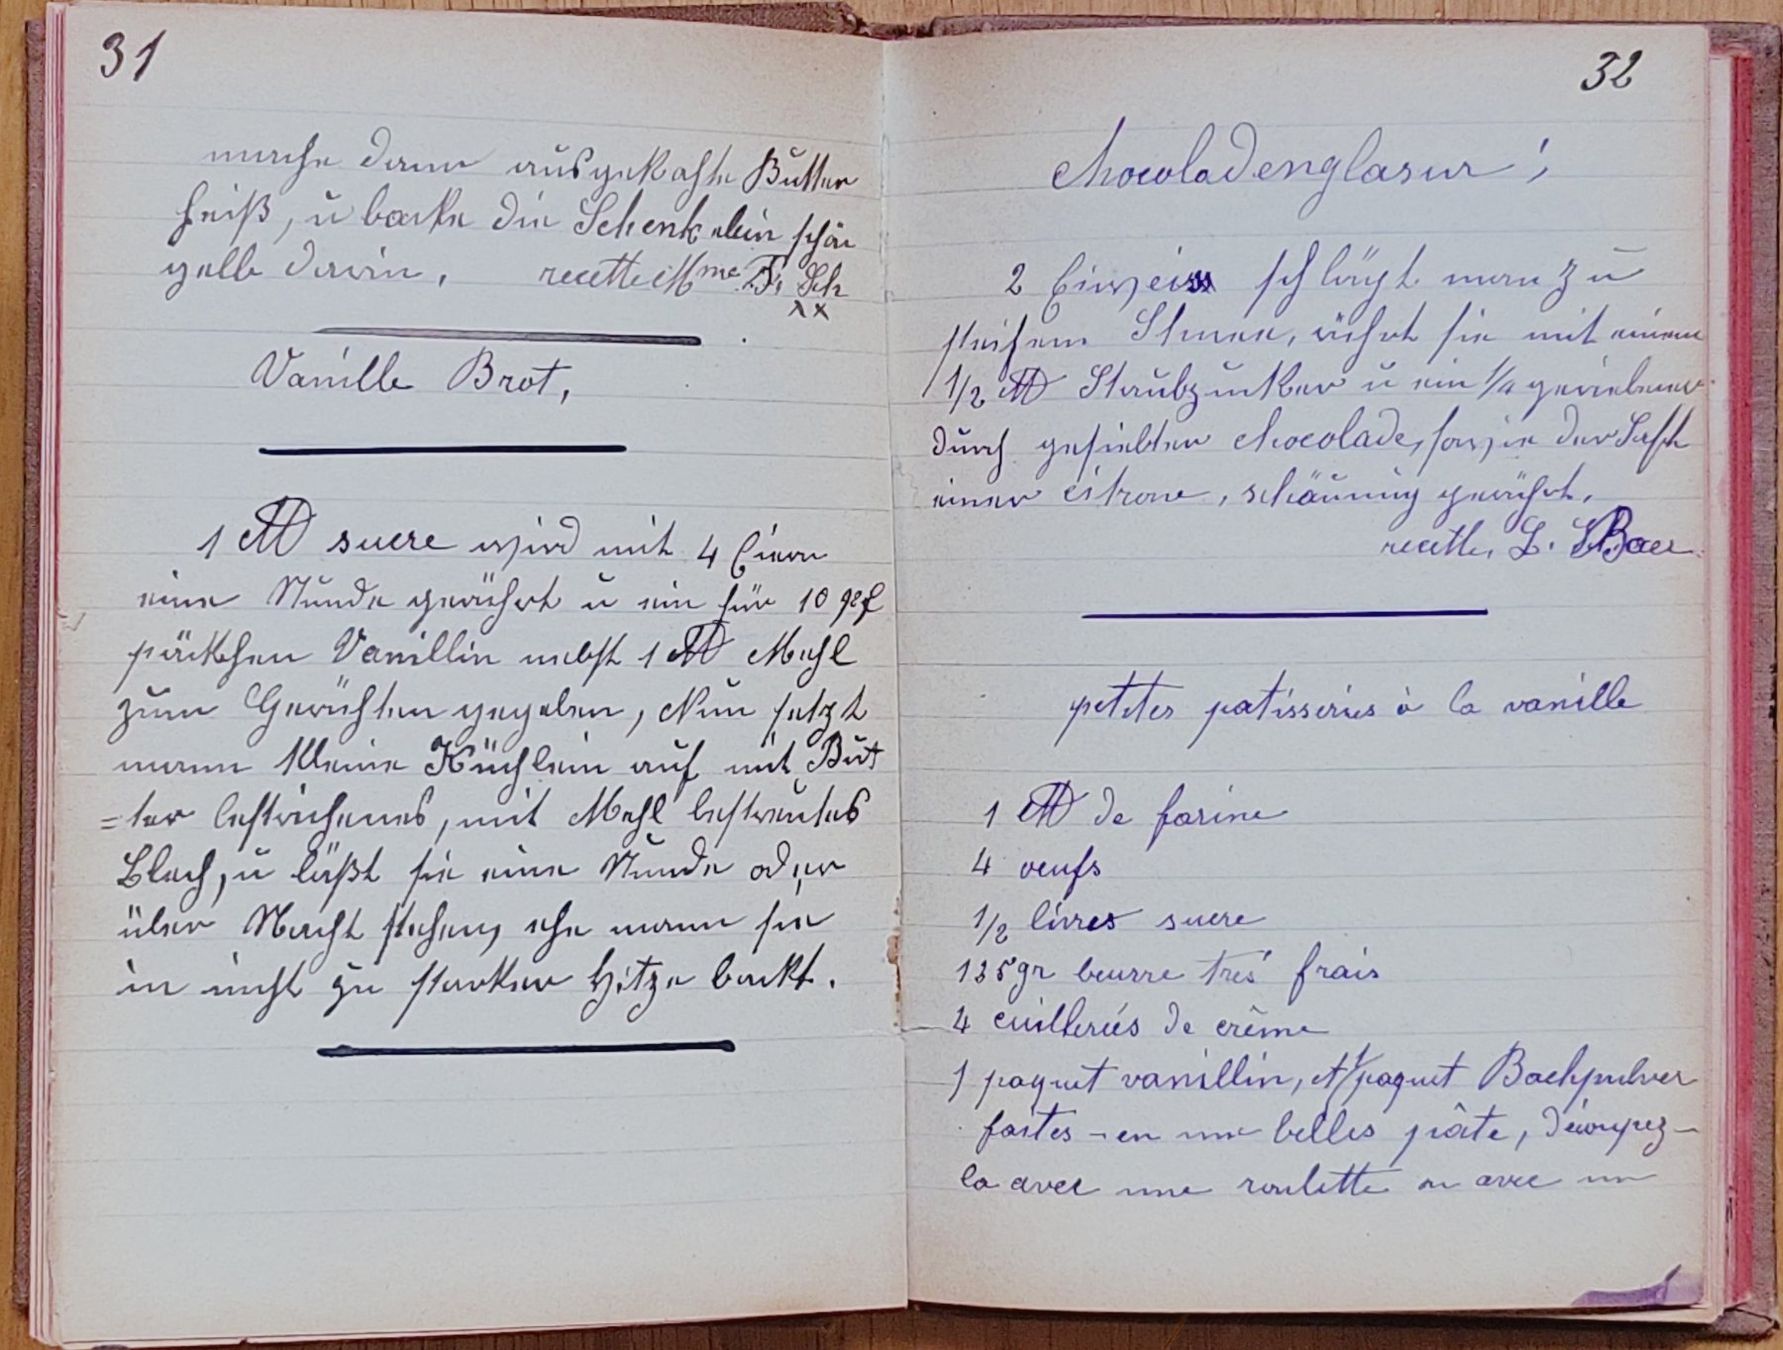 31
mache dann ausgekochte Butter
heiß, u backe die Schenkelein schön
gelb darin, recette Mme F. Sch
xx
Vanille Brot,
1 ℔ sucre wird mit 4 Eiern
eine Stunde gerührt u ein für 10
päckchen Vanillin nebst 1 ℔ Mehl
zum Gerührten gegeben, Nun setzt
mann kleine Küchlein auf mit But
=ter bestrichenes, mit Mehl bestreutes
Blech, u läßt sie eine Stunde oder
über Nacht stehen, ehe mann sie
in nicht zu starker Hitze backt.
32
Chocoladenglasur;
2 Eiweiss schlägt man zu
steifem Schnee, rührt sie mit einem
1/2 ℔ Staubzucker u ein 1/4 geriebener
durch gesiebter chocolade, sowie der Saft
einer citrone, schäumig gerührt.
recette, L. Baer
petites patisseries à la vanille
1 ℔ de farine
4 oeufs
1/2 livres sucre
125gr beurre trés frais
4 cuilleriés de crême
1 paquet vanillin, et 1 paquet Backpulver
faites-en une belles pâte, découpez-
la avec une roulette ou avec un